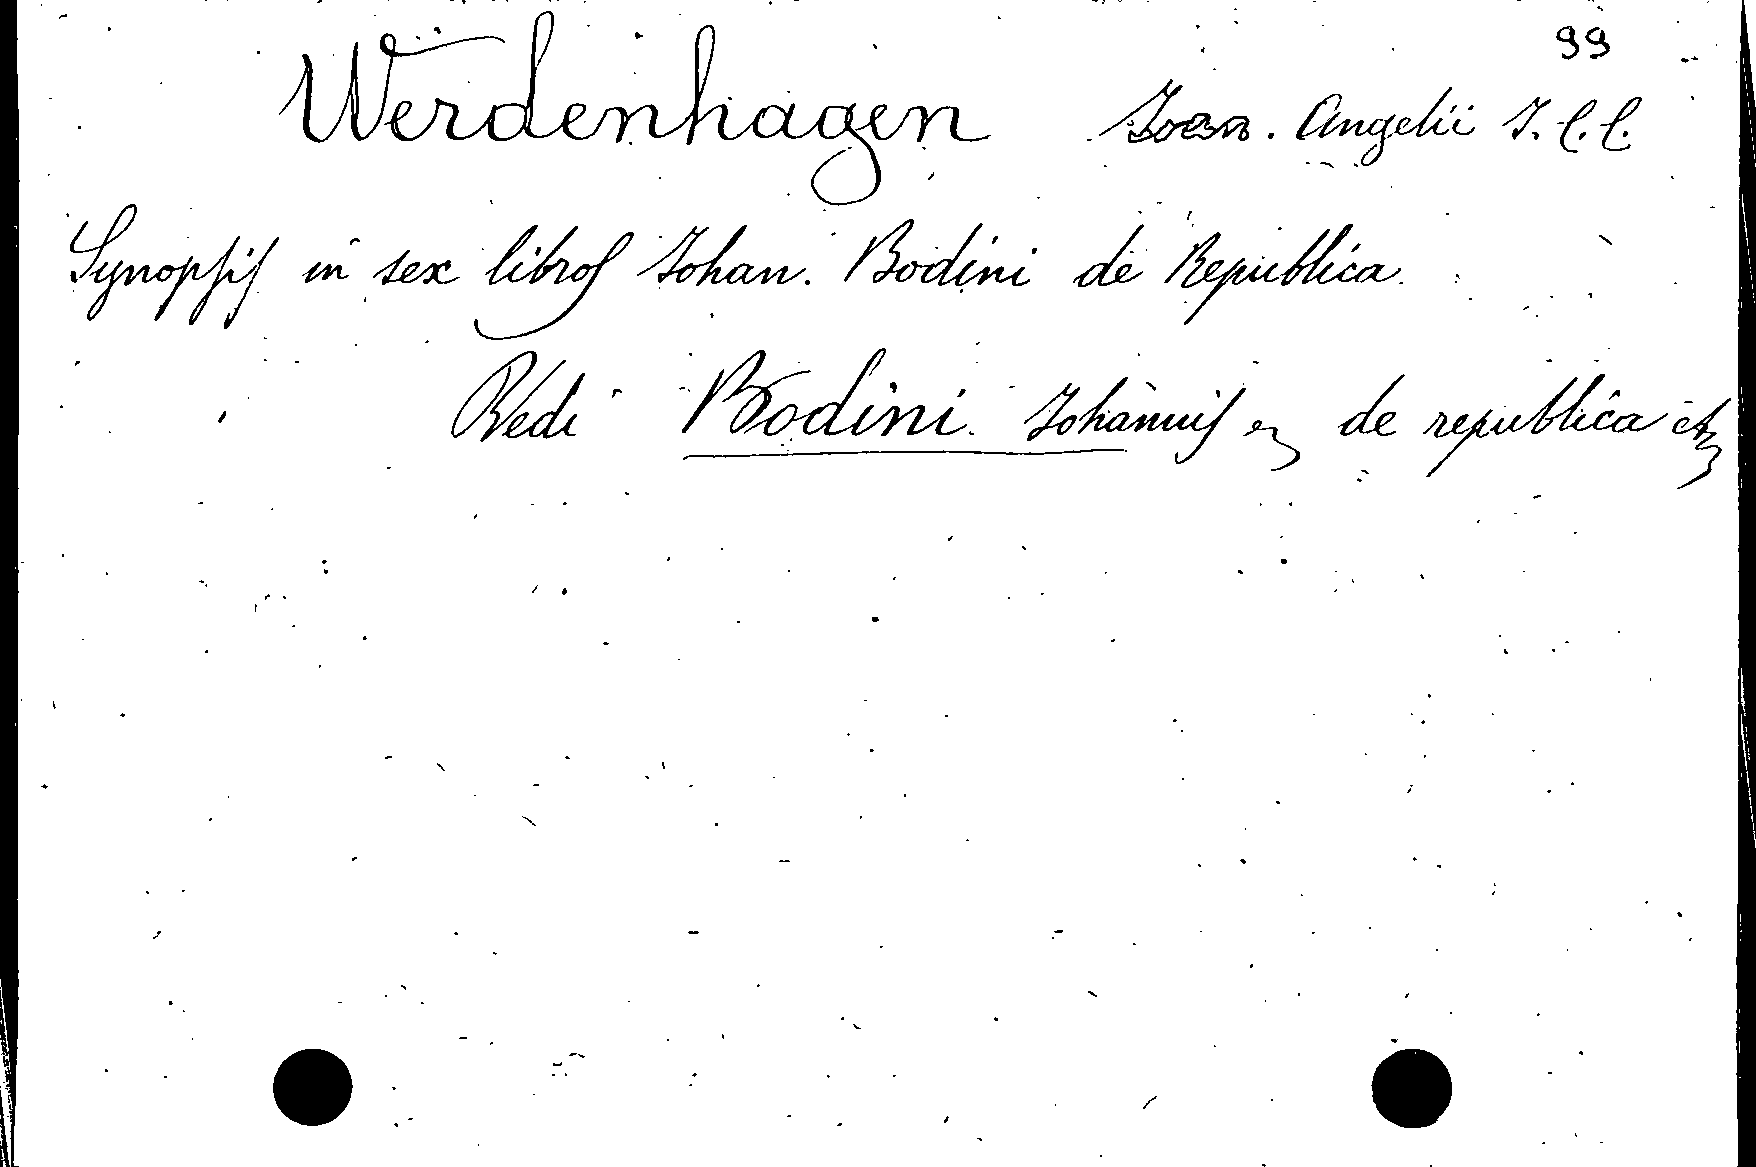 99
Werdenhagen Joan. Angelii I. C. C.
Synopsis in sex libros Johan. Bodini de Republica.
Vedi Bodini Johannis de republica etc